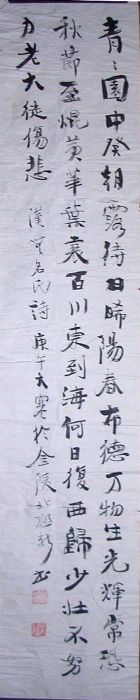 青〻園中葵朝露待日晞陽春布德万物生光輝常恐
秋節至焜黄華葉衰百川東到海何日復西歸少壯不努
力老大徒傷悲 漢無名氏詩 庚午大寒於金陵